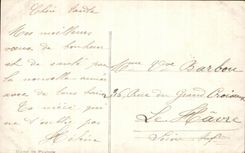 Chère tante
Mes meilleurs
vœux de bonheur
et de santé pour
la nouvelle année
avec de bons baisers
Ta nièce qui
ne t'oublie pas
Mme Vve Barbou
26, Rue du Grand Croissant
Le Hâvre
Seine Infre